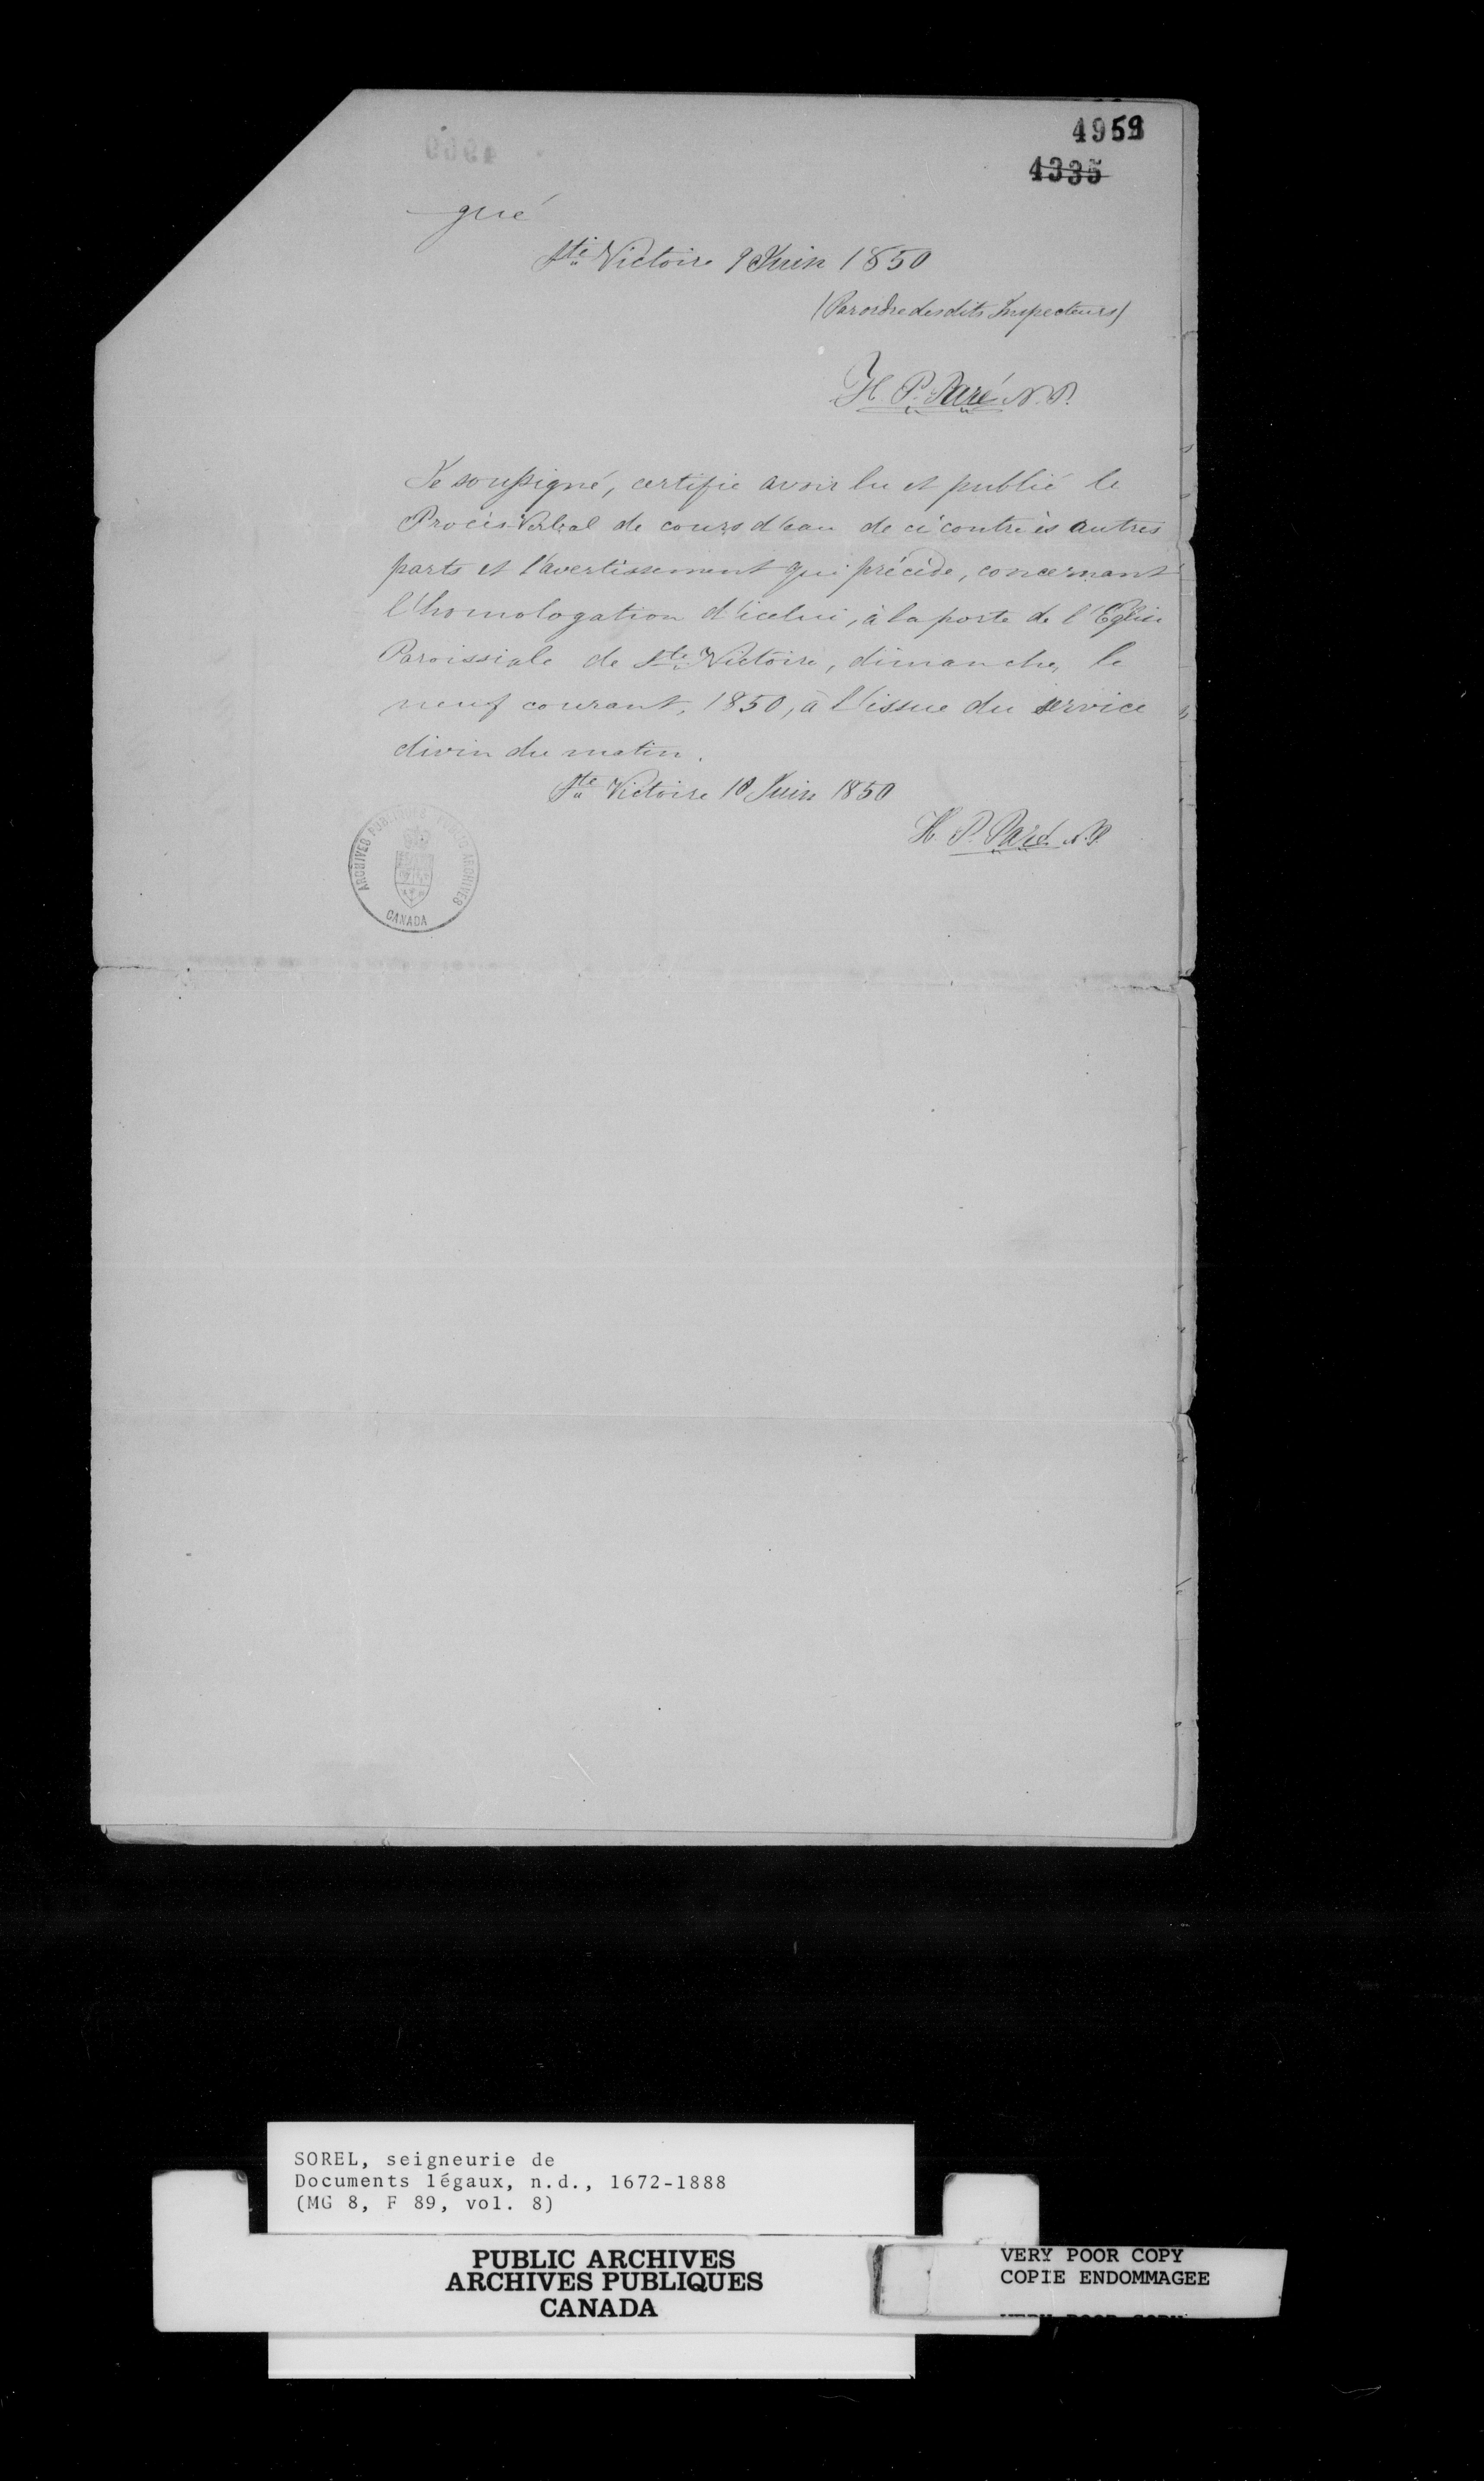 4959
4335
gué
Ste Victoire 9 Juin 1850
(Par ordre desdits Inspecteurs)
H. P. Paré N. P.
Je soussigné, certifie avoir lu et publié le
Procès Verbal de cours d'eau de ci contre ès autres
parts et l'avertissement qui précède, concernant
l'homologation d'icelui, à la porte de l'Eglise
Paroissiale de Ste Victoire, dimanche, le
neuf courant, 1850, à l'issue du service
divin du matin.
Ste Victoire 10 Juin 1850
H. P. Paré N. P.
ARCHIVES PUBLIQUES PUBLIC ARCHIVES
CANADA
SOREL, seigneurie de
Documents légaux, n.d., 1672-1888
(MG 8, F 89, vol. 8)
PUBLIC ARCHIVES
ARCHIVES PUBLIQUES
CANADA
VERY POOR COPY
COPIE ENDOMMAGEE
VERY POOR COPY